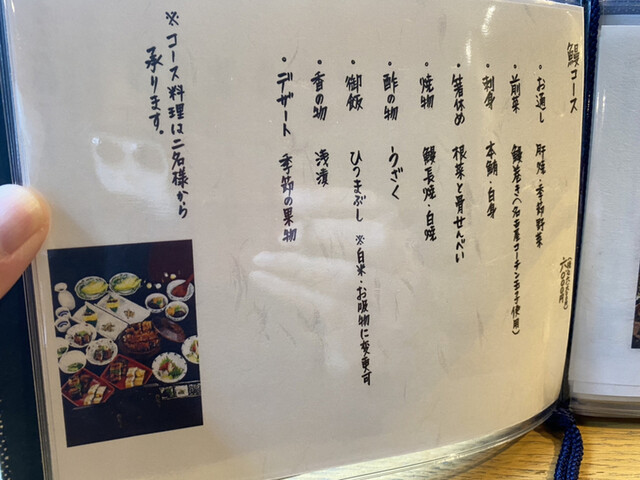 鰻コース
六〇〇〇円
・お通し 肝焼・季節野菜
・前菜 鰻巻き(名古屋コーチン玉子使用)
・刺身 本鮪・白身
・箸休め 根菜と骨せんべい
・焼物 鰻長焼・白焼
・酢の物 うざく
・御飯 ひつまぶし ※白米・お吸物に変更可
・香の物 浅漬
・デザート 季節の果物
※コース料理は二名様から
承ります。